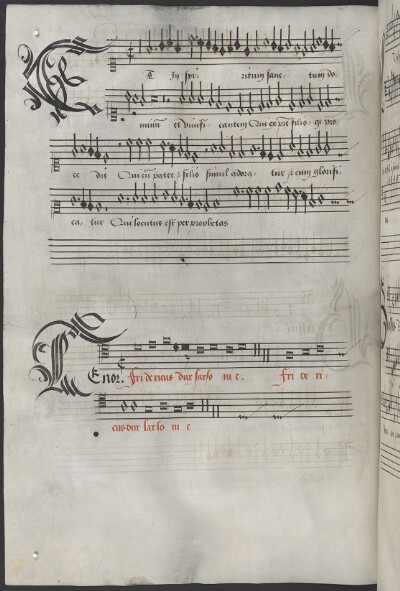 Et In spi- ritum sanc- tum do-
minum et vivifi- cantem Qui ex patre filio- q3 pro-
ce- dit Qui cū patre & filio simul adora- tur & cum glorifi-
ca- tur Qui locutus est per prophetas
TEnor. fri dericus dux saxso ni e. fri de ri-
cus dux saxso ni e